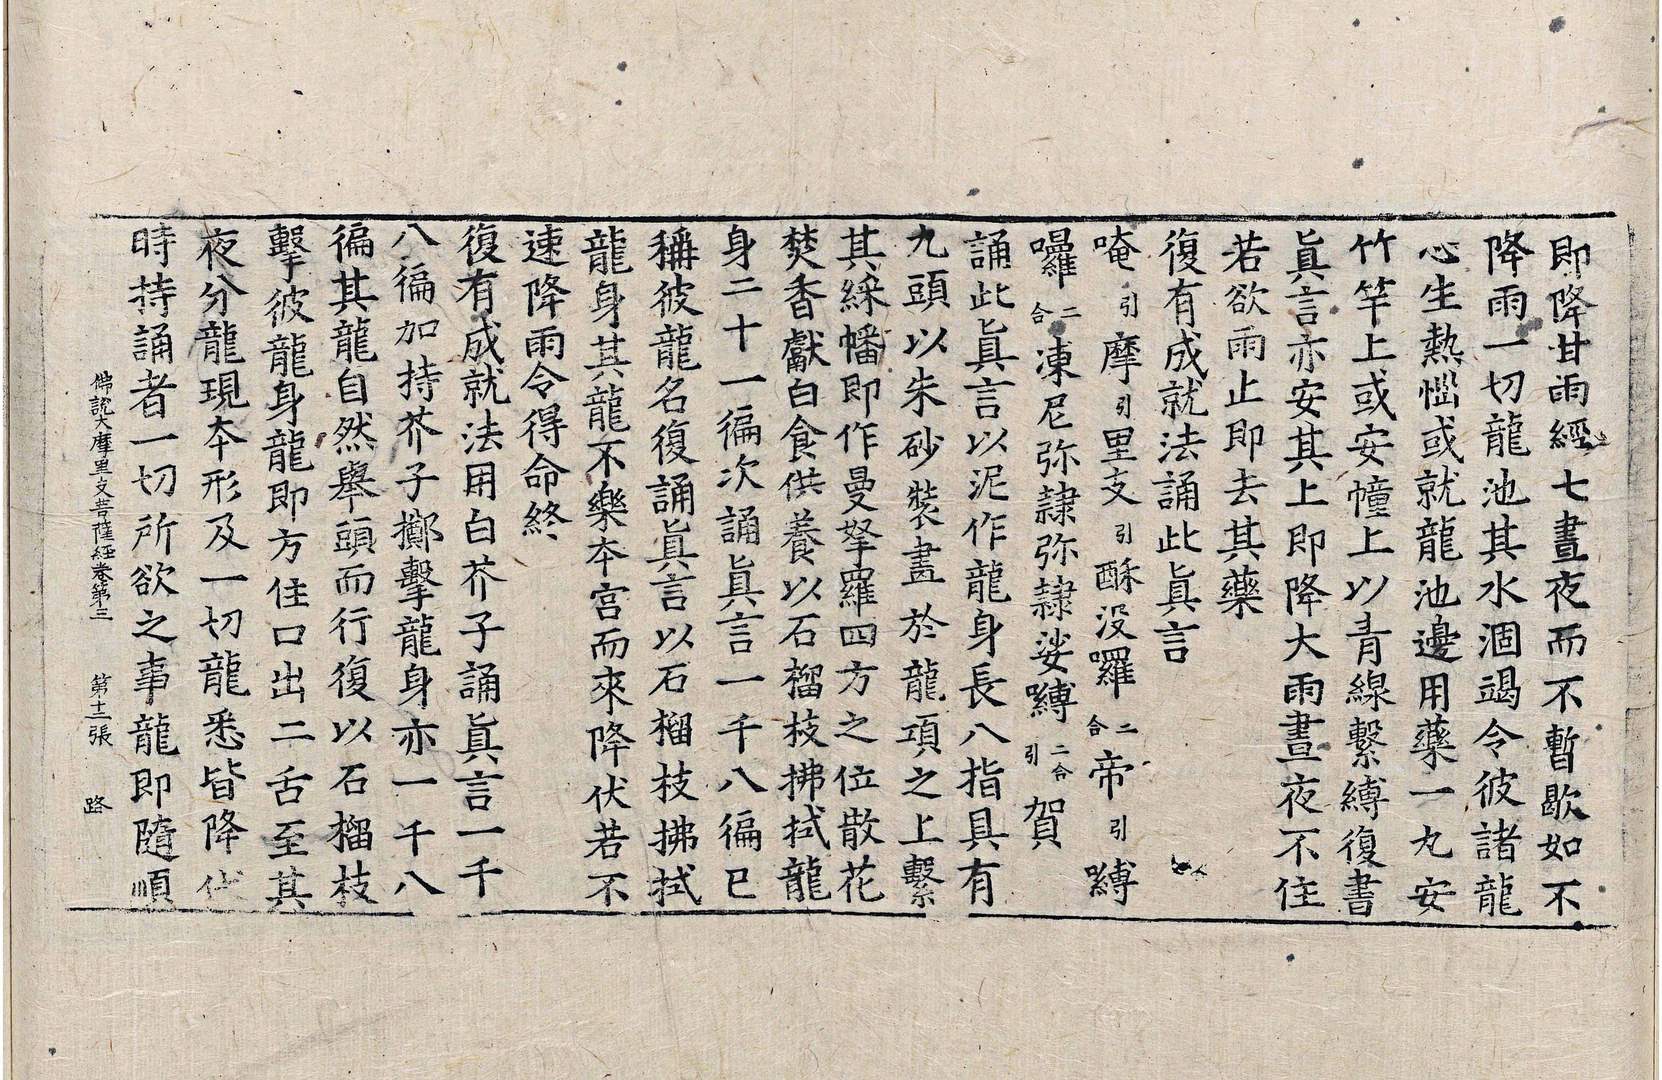 即降甘雨經七晝夜而不暫歇如不
降雨一切龍池其水涸竭令彼諸龍
心生熱惱或就龍池邊用藥一丸安
竹竿上或安幢上以青線繫縛復書
眞言亦安其上即降大雨晝夜不住
若欲雨止即去其藥
復有成就法誦此眞言
唵引摩引里支引酥没囉二合帝引嚩
囉二合凍尼弥隷弥隷娑嚩二合引賀
誦此眞言以泥作龍身長八指具有
九頭以朱砂裝畫於龍項之上繫
其綵幡即作曼拏羅四方之位散花
焚香獻白食供養以石榴枝拂拭龍
身二十一徧次誦眞言一千八徧已
稱彼龍名復誦眞言以石榴枝拂拭
龍身其龍不樂本宮而來降伏若不
速降雨令得命終
復有成就法用白芥子誦眞言一千
八徧加持芥子擲擊龍身亦一千八
徧其龍自然舉頭而行復以石榴枝
擊彼龍身龍即方住口出二舌至其
夜分龍現本形及一切龍悉皆降伏
時持誦者一切所欲之事龍即隨順
佛說大摩里支菩薩經卷第三 第十二張 路